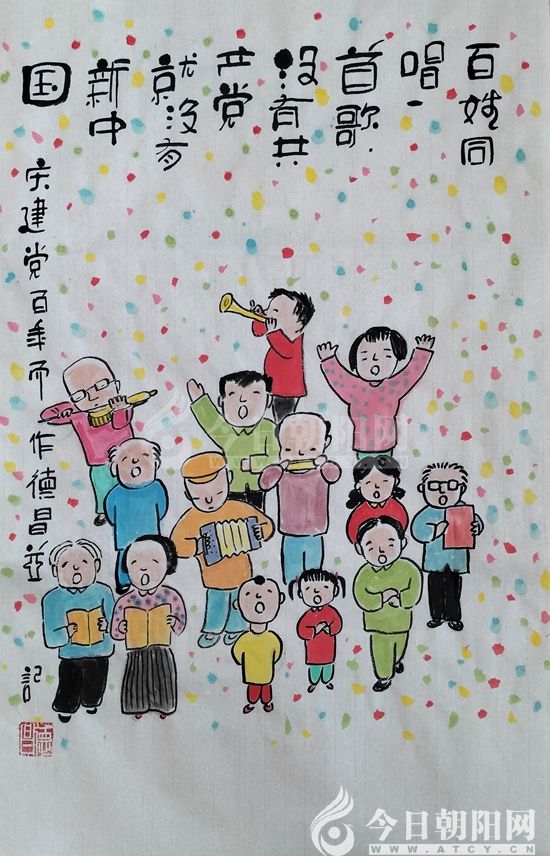 百姓同
唱一
首歌
没有共
产党
就没有
新中
国
庆建党百年而作德昌並
記
今日朝阳网
今日朝阳网
WWW.ATCY.CN